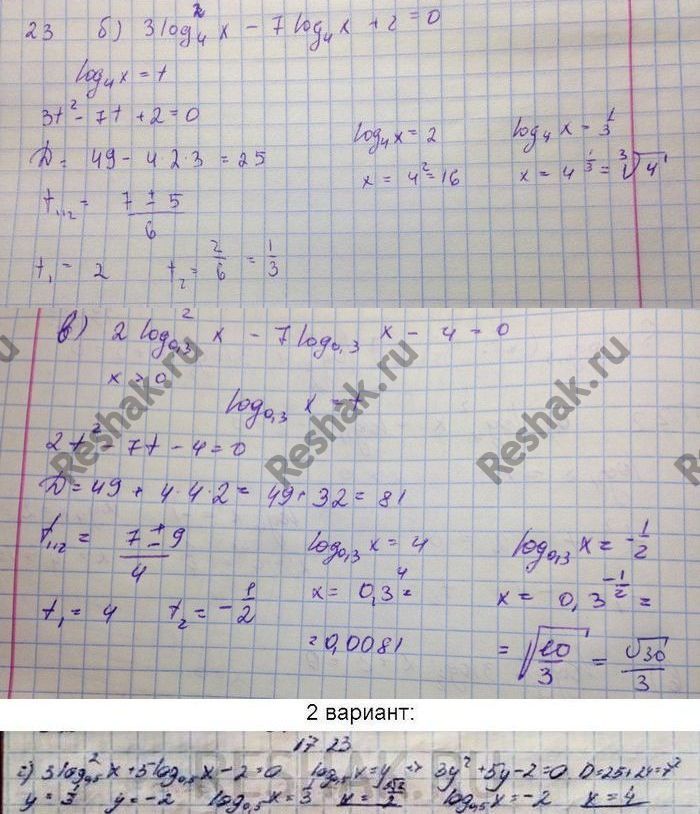 23 б) 3 log₄² x − 7 log₄ x + 2 = 0
log₄ x = t
3t² − 7t + 2 = 0
D = 49 − 4·2·3 = 25
t₁,₂ = (7 ± 5)/6
t₁ = 2 t₂ = 2/6 = 1/3
log₄ x = 2 log₄ x = 1/3
x = 4² = 16 x = 4^(1/3) = ∛4
в) 2 log₀,₃² x − 7 log₀,₃ x − 4 = 0
x > 0
log₀,₃ x = t
2t² − 7t − 4 = 0
D = 49 + 4·4·2 = 49 + 32 = 81
t₁,₂ = (7 ± 9)/4
t₁ = 4 t₂ = −1/2
log₀,₃ x = 4
x = 0,3⁴ =
= 0,0081
log₀,₃ x = −1/2
x = 0,3^(−1/2) =
= √(10/3) = √30/3
Reshak.ru
Reshak.ru
2 вариант:
17 23
г) 3 log₀,₅² x + 5 log₀,₅ x − 2 = 0 log₀,₅ x = y ⇒ 3y² + 5y − 2 = 0 D = 25 + 24 = 7²
y = 1/3 y = −2 log₀,₅ x = 1/3 log₀,₅ x = −2 x = 4
RESHAK.RU